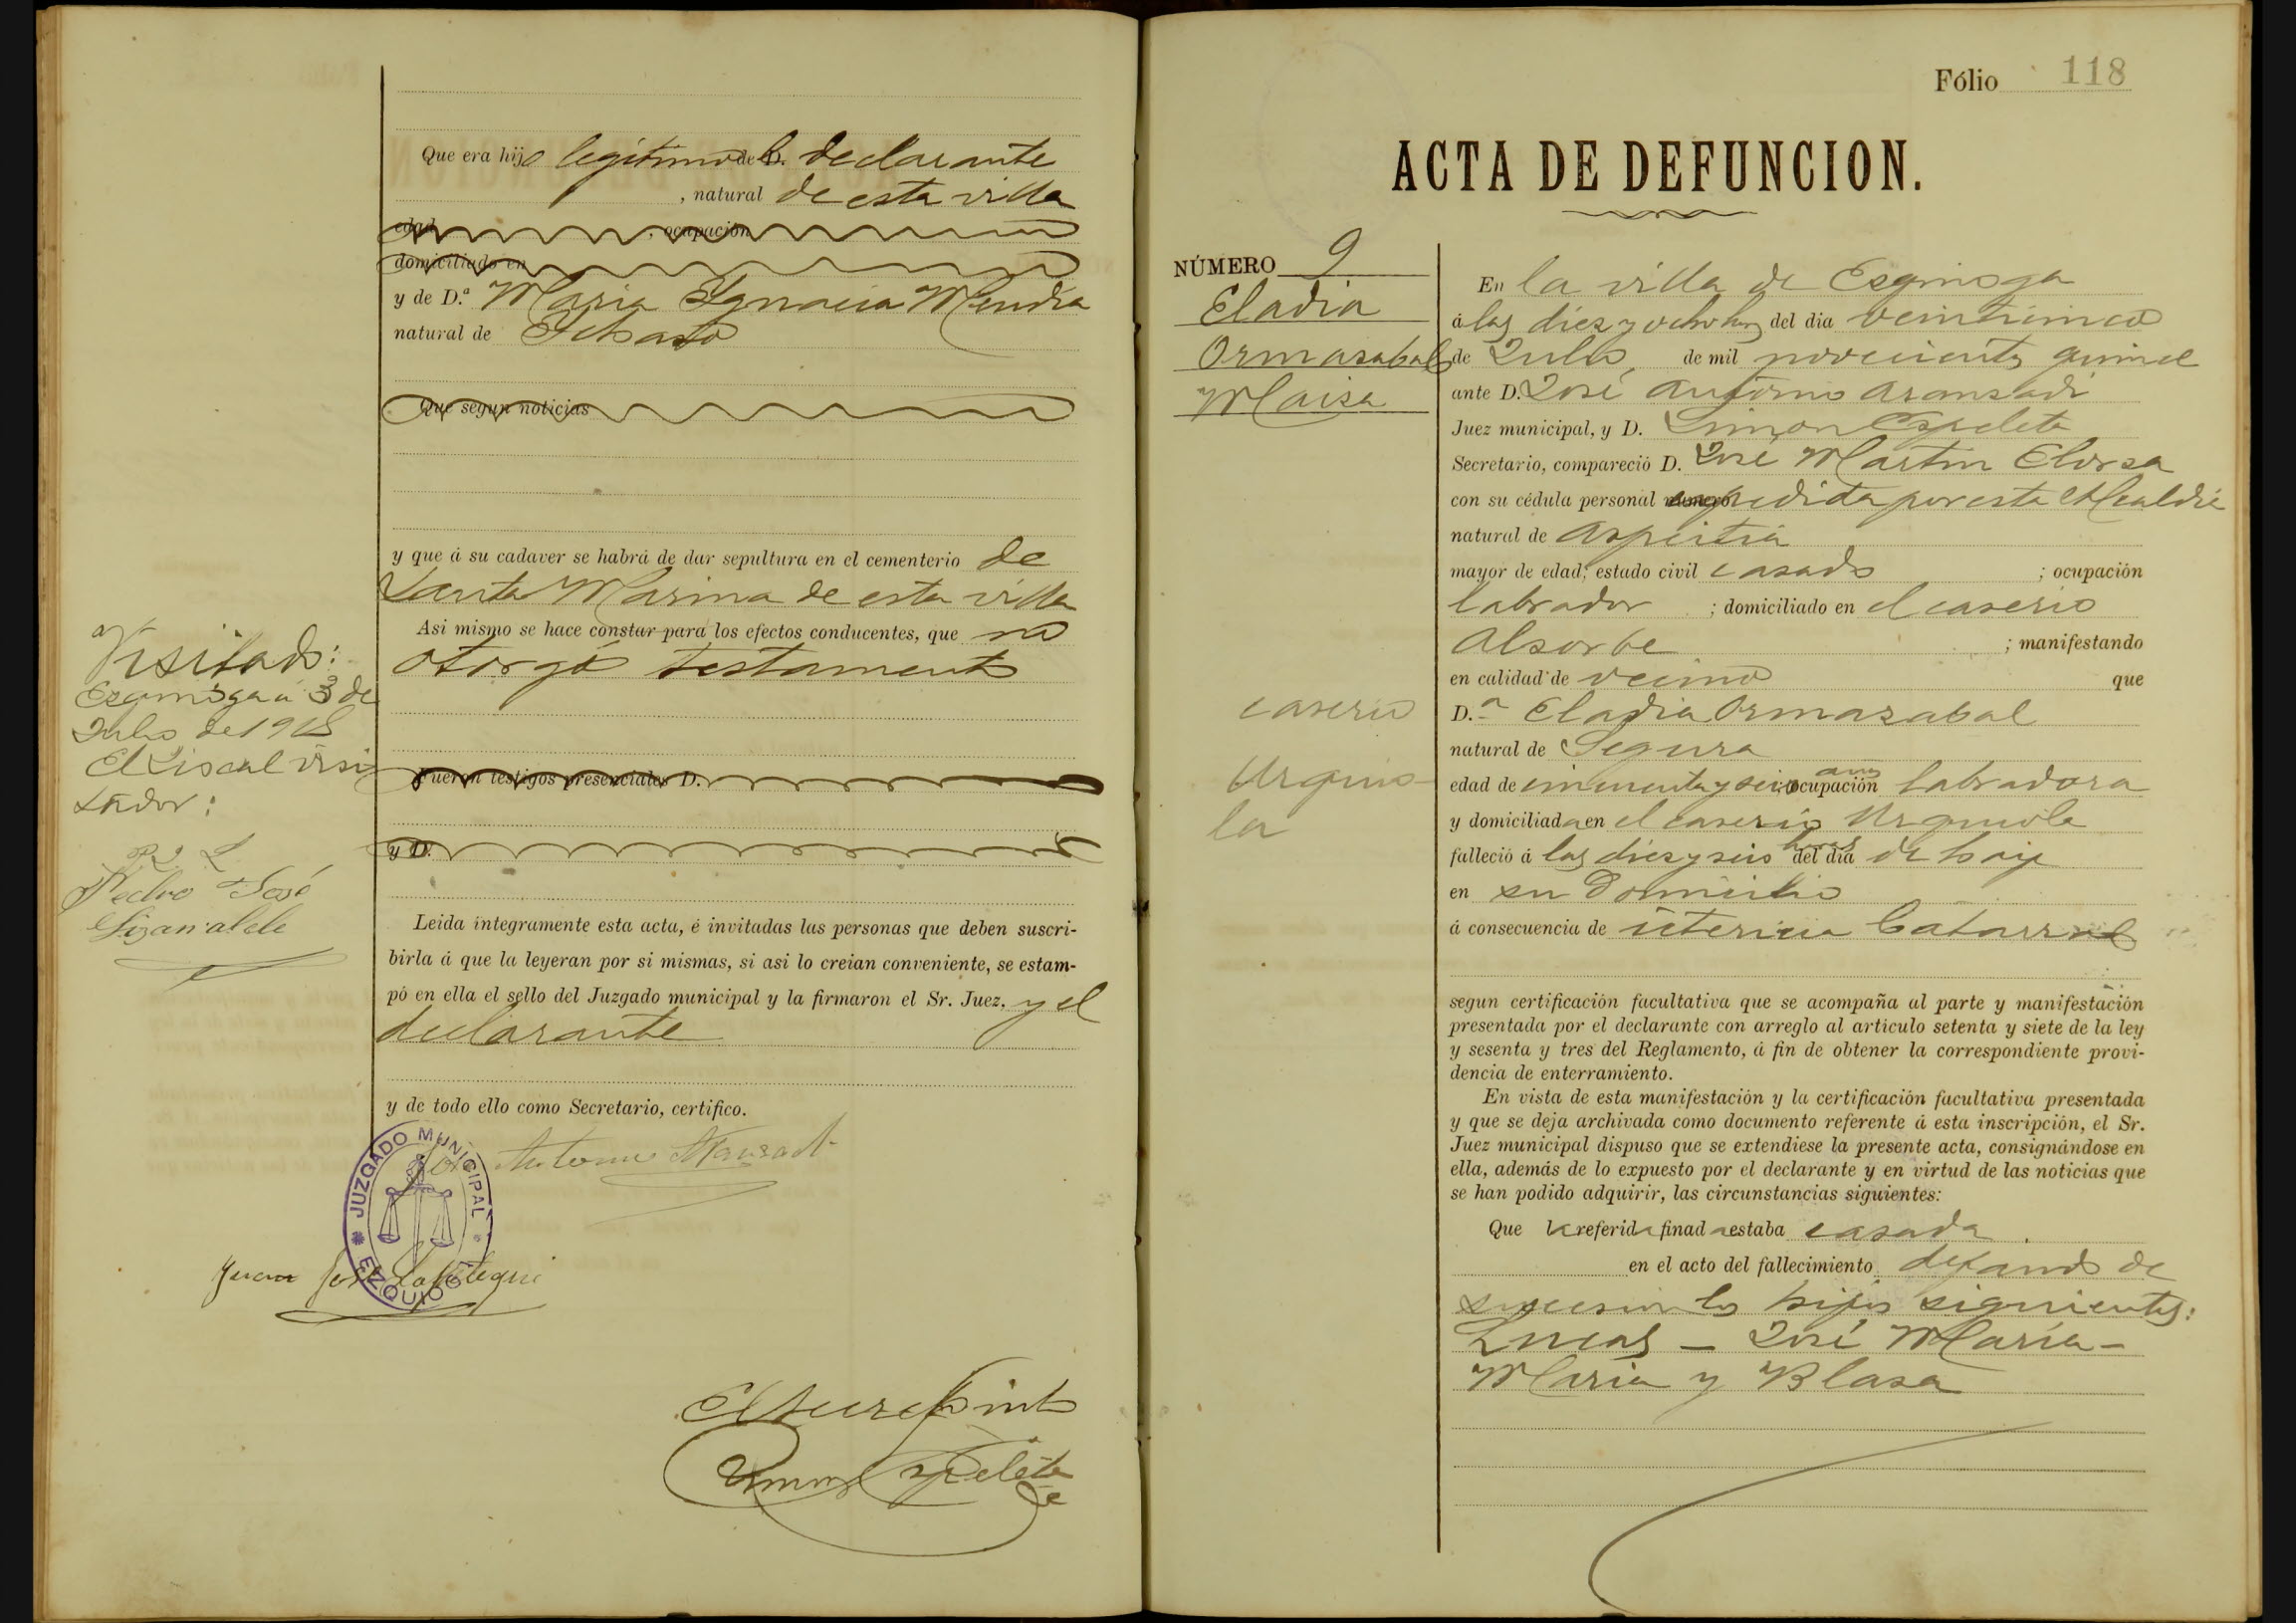 Que era hijo legítimo de D. declarante
, natural de esta villa
edad , ocupación
domiciliado en
y de D.ª Maria Ygnacia Mendia
natural de Ichaso
Que segun noticias
y que á su cadaver se habrá de dar sepultura en el cementerio de
Santa Marina de esta villa
Asi mismo se hace constar para los efectos conducentes, que no
otorgó testamento
Fueron testigos presenciales D.
y D.
Leida íntegramente esta acta, é invitadas las personas que deben suscri-
birla á que la leyeran por si mismas, si asi lo creian conveniente, se estam-
pó en ella el sello del Juzgado municipal y la firmaron el Sr. Juez, y el
declarante
y de todo ello como Secretario, certifico.
José Antonio Aranzadi
JUZGADO MUNICIPAL
EZQUIOGA
Juan José
Visitado:
Ezquioga á 3 de
Julio de 1918
El Fiscal visi-
tador:
Pedro José
Fólio 118
ACTA DE DEFUNCION.
NÚMERO 9
Eladia
Ormasabal
Maisa
caserio
Urquio-
la
En la villa de Esquioga
á las diez y ocho hras del dia veinticinco
de Julio de mil novecientos quince
ante D. José Antonio Aransadi
Juez municipal, y D. Simon Espeleta
Secretario, compareció D. José Martin Elorsa
con su cédula personal numero expedida por esta Alcaldía
natural de Aspeitia
mayor de edad; estado civil casado ; ocupación
labrador ; domiciliado en el caserio
Alsorbe ; manifestando
en calidad de vecino que
D.ª Eladia Ormasabal
natural de Segura
edad de cincuenta y seis años ocupación labradora
y domiciliada en el caserio Urquiola
falleció á las diez y seis horas del dia de hoy
en su domicilio
á consecuencia de ictericia Catarral
segun certificación facultativa que se acompaña al parte y manifestación
presentada por el declarante con arreglo al artículo setenta y siete de la ley
y sesenta y tres del Reglamento, á fin de obtener la correspondiente provi-
dencia de enterramiento.
En vista de esta manifestación y la certificación facultativa presentada
y que se deja archivada como documento referente á esta inscripción, el Sr.
Juez municipal dispuso que se extendiese la presente acta, consignándose en
ella, además de lo expuesto por el declarante y en virtud de las noticias que
se han podido adquirir, las circunstancias siguientes:
Que la referida finada estaba casada
en el acto del fallecimiento dejando de
sucesion los hijos siguientes:
Lucas - José María -
María y Blasa